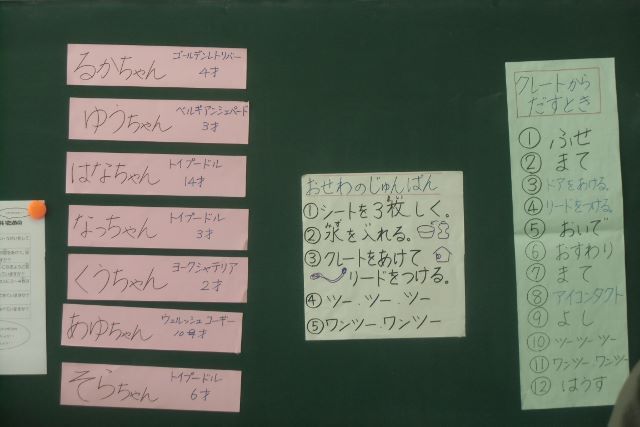 るかちゃん
ゴールデンレトリバー
4才
ゆうちゃん
ベルギアンシェパード
3才
はなちゃん
トイプードル
14才
なっちゃん
トイプードル
3才
くうちゃん
ヨークシャテリア
2才
あゆちゃん
ウェルッシュコーギー
そらちゃん
トイプードル
6才
おせわのじゅんばん
①シートを3枚しく。
②尿を入れる。
③クレートをあけて
リードをつける。
④ツー、ツー、ツー
⑤ワンツー、ワンツー
クレートから
だすとき
①ふせ
②まて
③ドアをあける。
④リードをつける。
⑤おいで
⑥おすわり
⑦まて
⑧アイコンタクト
⑨よし
⑩ツーツーツー
⑪ワンツー、ワンツー
⑫はうす